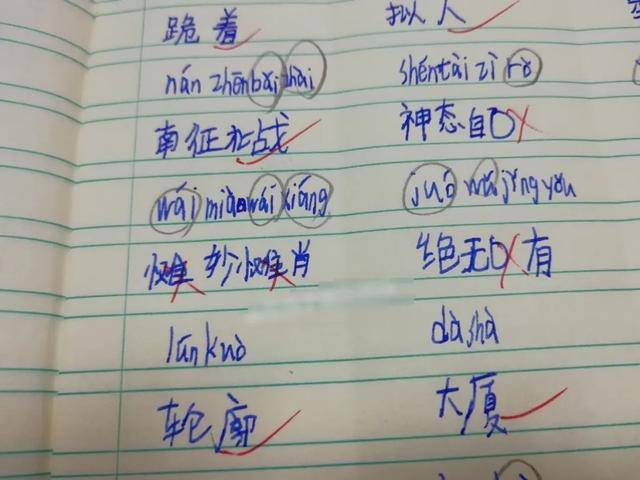 跪着 拟人
nán zhēnbǎizhài shéntài zì rò
南征北战 神态自
wái miàowái xiáng juó wǔ jǐng yǒu
惟妙惟肖 绝无 有
lún kuò dà shà
轮廓 大厦